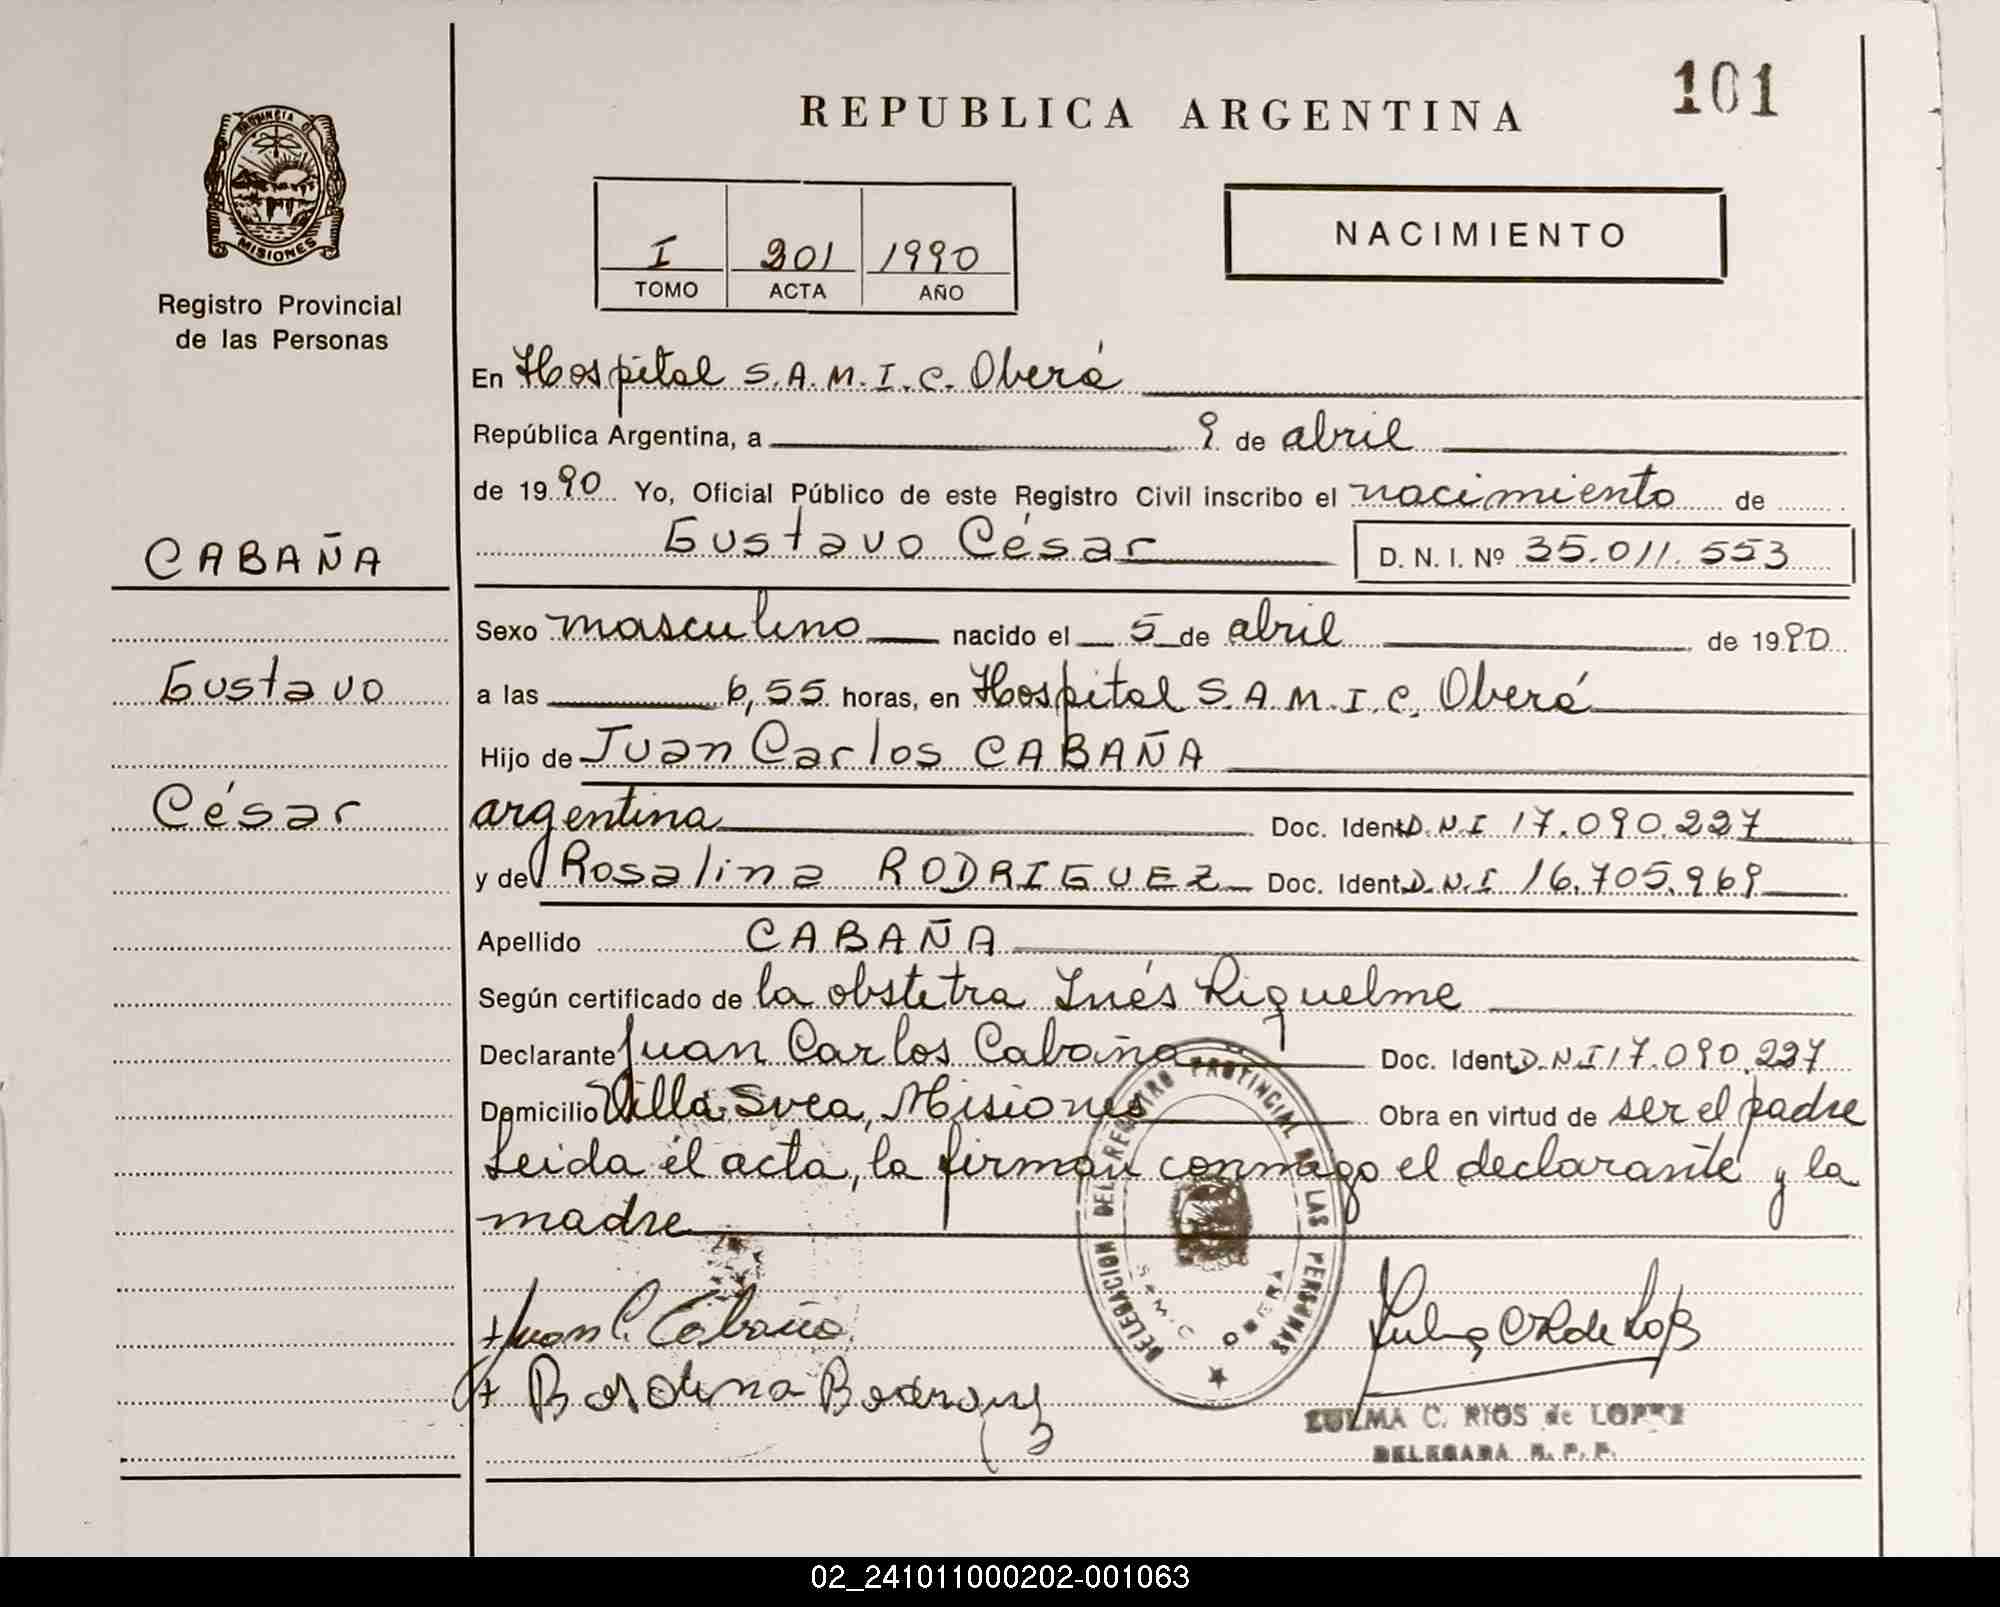 REPUBLICA ARGENTINA
101
PROVINCIA DE
MISIONES
Registro Provincial
de las Personas
I 201 1990
TOMO ACTA AÑO
NACIMIENTO
En Hospital S.A.M.I.C. Oberá
República Argentina, a 9 de abril
de 1990 Yo, Oficial Público de este Registro Civil inscribo el nacimiento de
CABAÑA
Gustavo César D. N. I. Nº 35.011.553
Sexo masculino nacido el 5 de abril de 1990
Gustavo
a las 6,55 horas, en Hospital S.A.M.I.C. Oberá
Hijo de Juan Carlos CABAÑA
César
argentina Doc. Ident. D.N.I 17.090.227
y de Rosalina RODRIGUEZ Doc. Ident. D.N.I 16.705.969
Apellido CABAÑA
Según certificado de la obstetra Inés Riquelme
Declarante Juan Carlos Cabaña Doc. Ident. D.N.I 17.090.227
Domicilio Villa Svea, Misiones Obra en virtud de ser el padre
Leida el acta, la firman conmigo el declarante y la
madre
DELEGACION DEL REGISTRO PROVINCIAL DE LAS PERSONAS
S.A.M.I.C. OBERA
Juan C. Cabaña
ZULMA C. RIOS de LOPEZ
DELEGADA R. P. P.
02_241011000202-001063